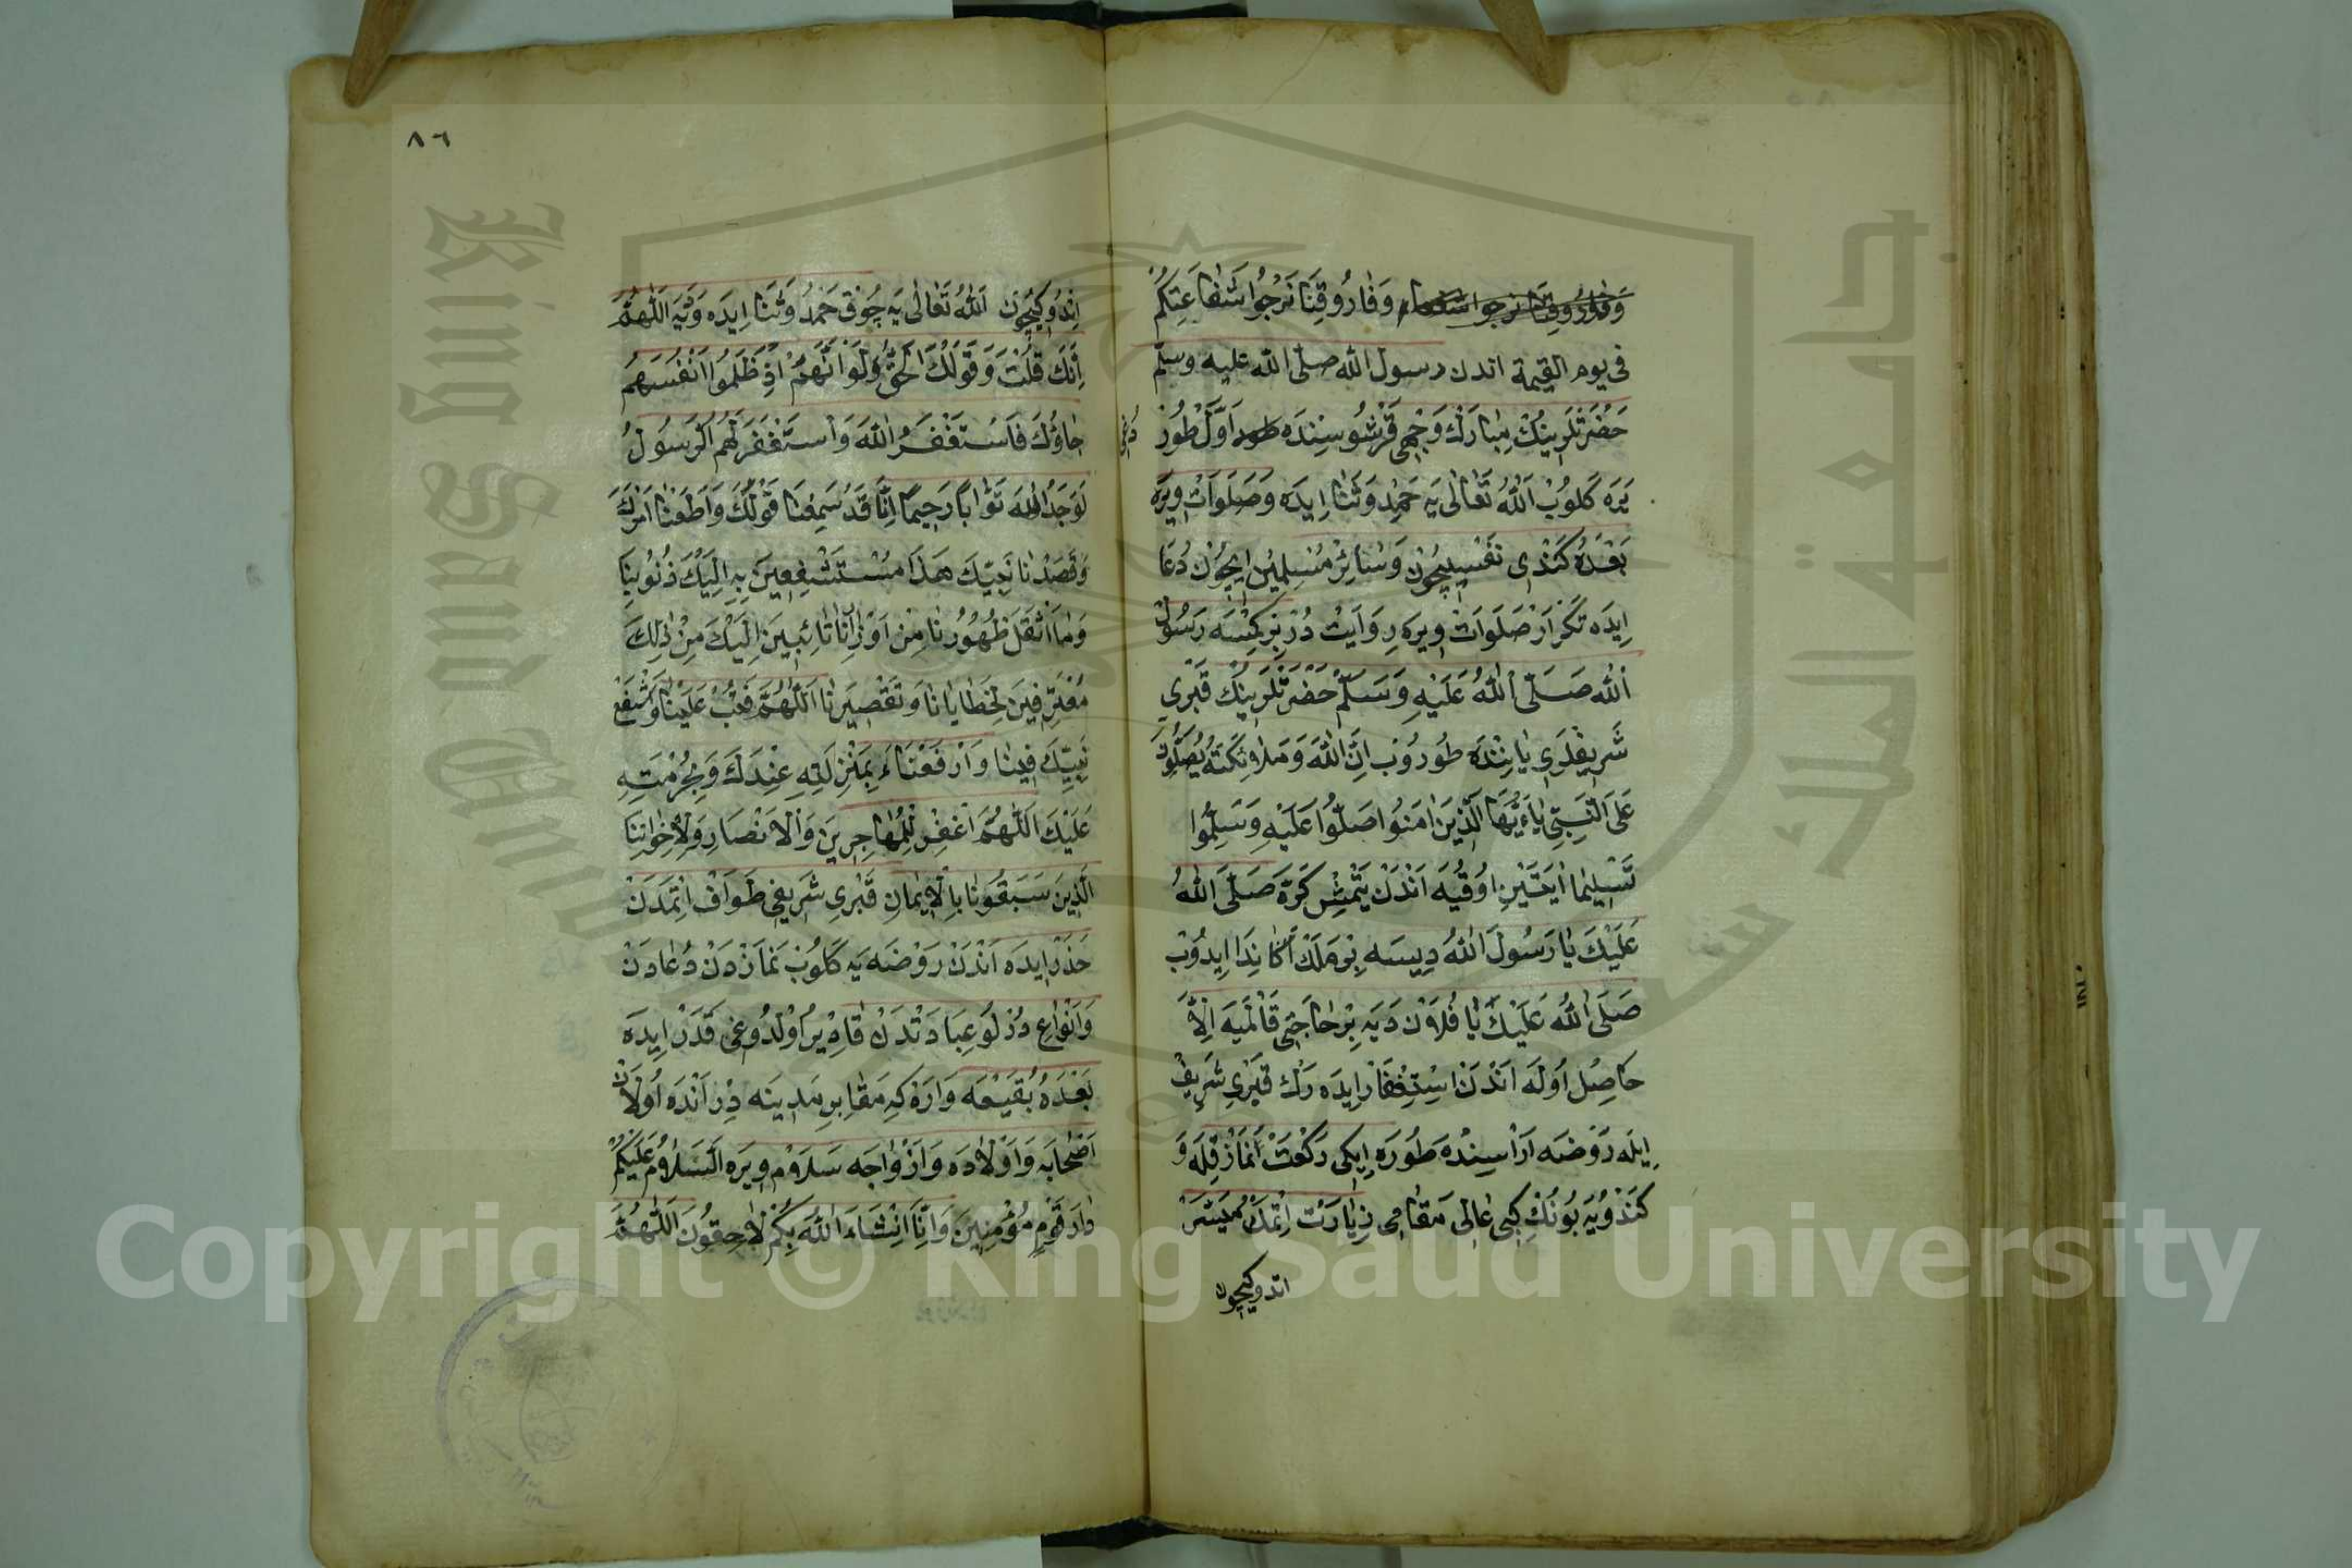 وَفَارُوقِنَا نَرْجُوا شَفَاعَتَكُمْ
فى يوم القيمة اندن رسول الله صلى الله عليه وسلم
حَضْرَتْلَرِينُكْ مِبَارَكْ وَجْهِى قَرْشُوسِنْدَه اَوَّلْ طُورْ
يَرَه كَلُوبْ اَللهُ تَعَالٰى يَه حَمْدِ وَثَنَا اِيدَه وَصَلَوَاتْ وِيرَه
بَعْدَهُ كَنْدِى نَفْسِيچُونْ وَسَائِرْ مُسْلِمِينْ اِيچُونْ دُعَا
اِيدَه تَكْرَارْ صَلَوَاتْ وِيرَه رِوَايَتْ دُرْ بِرْ كِمْسَه رَسُولُ
اللهِ صَلَّى اللهُ عَلَيْهِ وَسَلَّمْ حَضْرَتْلَرِينُكْ قَبْرِى
شَرِيفْلَرِى يَانِنْدَه طُورُوبْ اِنَّ اللهَ وَمَلَائِكَتَهُ يُصَلُّونَ
عَلَى النَّبِىِّ يَاءَيُّهَا الَّذِينَ اٰمَنُوا صَلُّوا عَلَيْهِ وَسَلِّمُوا
تَسْلِيمًا اٰيَتَيْنِ اوُقُيَه اَنْدَنْ يَتْمِشْ كَرَّه صَلَّى اللهُ
عَلَيْكَ يَا رَسُولَ اللهْ دِيسَه بِرْ مَلَكْ اَكَا نِدَا اِيدُوبْ
صَلَّى اللهُ عَلَيْكَ يَا فُلَاوْنْ دَيَه بِرْ حَاجَتِى قَالْمَيَه اِلَّا
حَاصِلْ اُولَه اَنْدَنْ اسْتِغْفَارْ اِيدَه رَكْ قَبْرِى شَرِيفْ
اِيلَه رَوْضَه اَرَاسِنْدَه طُورَه اِيكِى رَكْعَتْ نَمَازْ قِلَه وَ
كَنْدُويَه بُونُكْ كِبِى عَالِى مَقَامِى زِيَارَتْ اِتْمَكْ مُيَسَّرْ
اتدوكيچون
٨٦
اِتْدُوكِيچُونْ اَللهُ تَعَالٰى يَه چُوقْ حَمْدُ وَثَنَا اِيدَه وَدِيَه اَللّٰهُمَّ
اِنَّكَ قُلْتَ وَقَوْلُكَ الْحَقُّ وَلَوْ اَنَّهُمْ اِذْ ظَلَمُوا اَنْفُسَهُمْ
جَاؤُكَ فَاسْتَغْفَرُ اللهَ وَاسْتَغْفَرَ لَهُمُ الرَّسُولُ
لَوَجَدُ اللهَ تَوَّابًا رَحِيمًا اِنَّا قَدْ سَمِعْنَا قَوْلَكَ وَاَطَعْنَا اَمْرَكَ
وَقَصَدْنَا نَبِيَّكَ هَذَا مُسْتَشْفِعِينَ بِهِ اِلَيْكَ ذُنُوبِنَا
وَمَا اَثْقَلَ ظُهُورُنَا مِنْ اَوْزَارِنَا تَائِبِينَ اِلَيْكَ مِنْ ذٰلِكَ
مُعْتَرِفِينَ لِخَطَايَانَا وَتَقْصِيرِنَا اَللّٰهُمَّ فَتُبْ عَلَيْنَا وَاشْفَعْ
نَبِيِّكَ فِينَا وَارْفَعْنَاءَ بِمَنْزِلَتِهِ عِنْدَكَ وَبِحُرْمَتِهِ
عَلَيْكَ اَللّٰهُمَّ اغْفِرْ لِلْمُهَاجِرِينَ وَالْاَنْصَارِ وَلِاَخْوَانِنَا
الَّذِينَ سَبَقُونَا بِالْاِيمَانِ قَبْرِى شَرِيفِى طَوَافْ اِتْمَدَنْ
حَذَرْ اِيدَه اَنْدَنْ رَوْضَه يَه كَلُوبْ نَمَازْدَنْ دُعَادَنْ
وَاَنْوَاعِ دُرْلُو عِبَادَتْدَنْ قَادِيرْ اُولْدُوغِى قَدَرْ اِيدَه
بَعْدَهُ بَقِيعَه وَارَه كِه مَقَابِرِ مَدِينَه دِرْ اَنْدَه اُولَانْ
اَصْحَابَه وَاَوْلَادَه وَاَزْوَاجَه سَلَاوْمْ وِيرَه اَلسَّلَاوْمُ عَلَيْكُمْ
دَارَ قَوْمٍ مُؤْمِنِينَ وَاِنَّا اِنْشَاءَ اللهُ بِكُمْ لَاحِقُونَ اَللّٰهُمَّ
Copyright © King Saud University